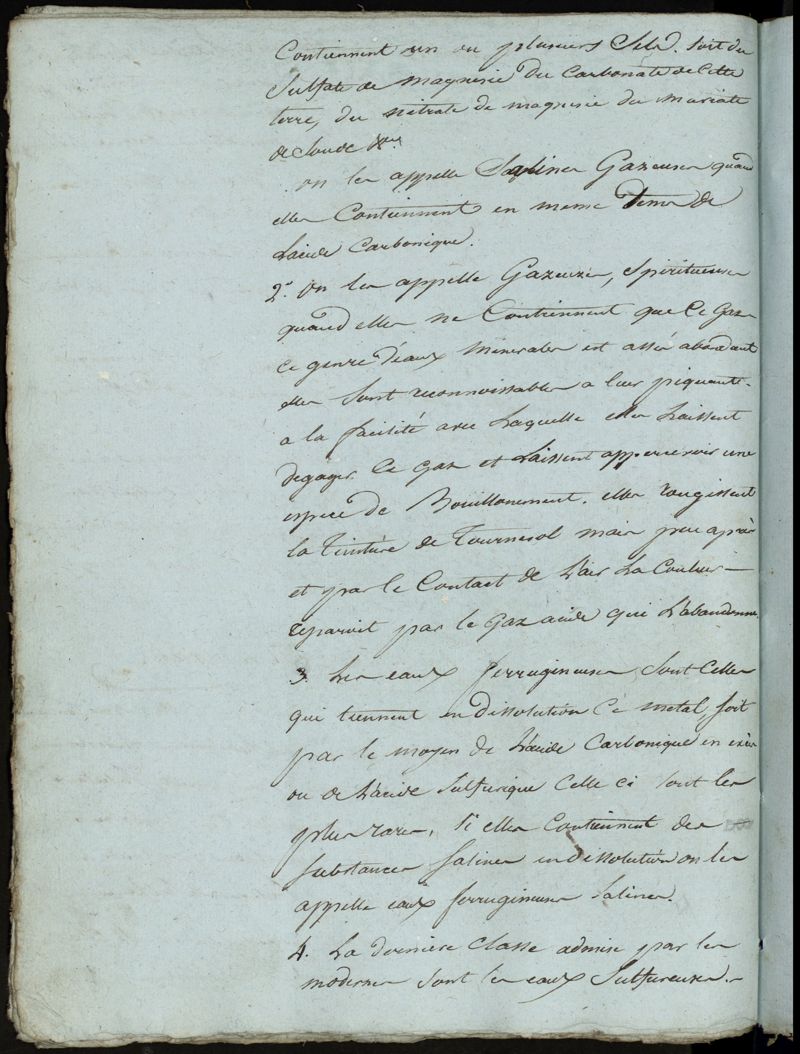 Contiennent un ou plusieurs Sels. soit du
Sulfate de magnesie du Carbonate de Cette
terre, du nitrate de magnesie du muriate
de Soude &ca
on les appelle Salines Gazeuses quand
elles Contiennent en meme tems de
L'acide Carbonique.
2.° on les appelle Gazeuzes, Spiritueuses
quand elles ne Contiennent que Ce Gaz
Ce genre d'eaux minerales est assés abondant
elles sont reconnoissables a leur piquante
a la facilité avec Laquelle elles Laissent
degager Ce gaz et Laissent appercevoir une
espece de Bouillonement. elles rougissent
la Teinture de Tournesol mais peu après
et par le Contact de L'air La Couleur —
reparoit par le Gaz acide qui L'abandonne.
3. Les eaux ferrugineuses sont Celles
qui tiennent en dissolution Ce metal soit
par le moyen de L'acide Carbonique en excès
ou de L'acide Sulfurique Celle ci sont les
plus rares, Si elles Contiennent des
substances salines en dissolution on les
appelle eaux ferrugineuses Salines.
4. La derniere Classe admise par les
modernes sont les eaux Sulfureuses.-